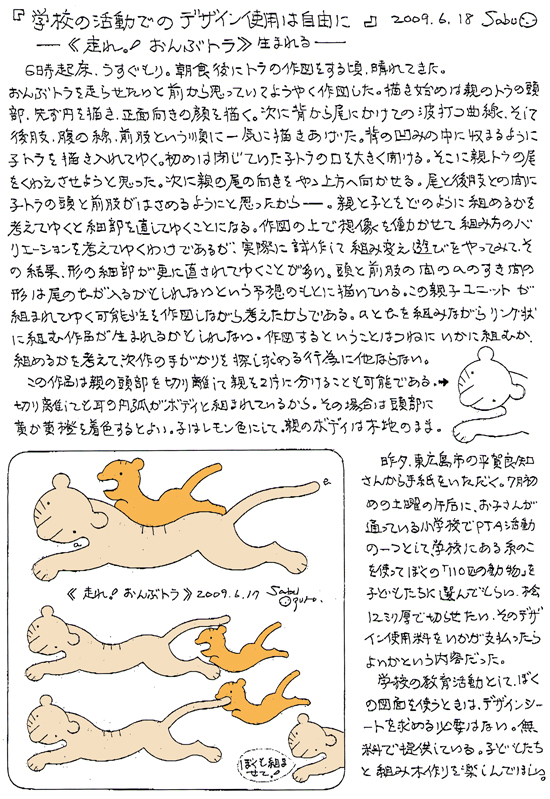 『学校の活動でのデザイン使用は自由に』 2009.6.18 Sabu
―《走れ!おんぶトラ》生まれる―
6時起床、うすぐもり。朝食後にトラの作図をする頃、晴れてきた。
おんぶトラを走らせたいと前から思っていてようやく作図した。描き始めは親のトラの頭
部、先ず円を描き、正面向きの顔を描く。次に背から尾にかけての波打つ曲線、そして
後肢、腹の線、前肢という順に一気に描きあげた。背の凹みの中に収まるように
子トラを描き入れてゆく。初めは閉じていた子トラの口を大きく開ける。そこに親トラの尾
をくわえさせようと思った。次に親の尾の向きをやゝ上方へ向かせる。尾と後肢との間に
子トラの頭と前肢がはさめるようにと思ったから―。親と子とをどのように組めるかを
考えてゆくと細部を直してゆくことになる。作図の上で想像を働かせて組み方のバ
リエーションを考えてゆくわけであるが、実際に試作して組み変え遊びをやってみて、そ
の結果、形の細部が更に直されてゆくことが多い。頭と前肢の間のaのすき間の
形は尾のeが入るかもしれないという予想のもとに描いている。この親子ユニットが
組まれてゆく可能性を作図しながら考えたからである。aとeを組みながらリング状
に組む作品が生まれるかもしれない。作図するということはつねにいかに組むか、
組めるかを考えて次作の手がかりを探し求める行為に他ならない。
この作品は親の頭部を切り離して親を2片に分けることも可能である。→
切り離しても耳の円弧がボディと組まれているから。その場合は頭部に
黄か黄橙を着色するとよい。子はレモン色にして。親のボディは木地のまま。
a
e
《走れ!おんぶトラ》2009.6.17 Sabu Oguro.
ぼくも組ま
せて!
昨夕、東広島市の平賀良知
さんから手紙をいただく。7月初
めの土曜の午后に、お子さんが
通っている小学校でPTA活動
の一つとして学校にある糸のこ
を使ってぼくの「110匹の動物」を
子どもたちに選んでもらい、松
12ミリ厚で切らせたい。そのデザ
イン使用料をいかが支払ったら
よいかという内容だった。
学校の教育活動として、ぼく
の図面を使うときは、デザインシー
トを求める必要はない。無
料で提供している。子どもたち
と組み木作りを楽しんでほしい。